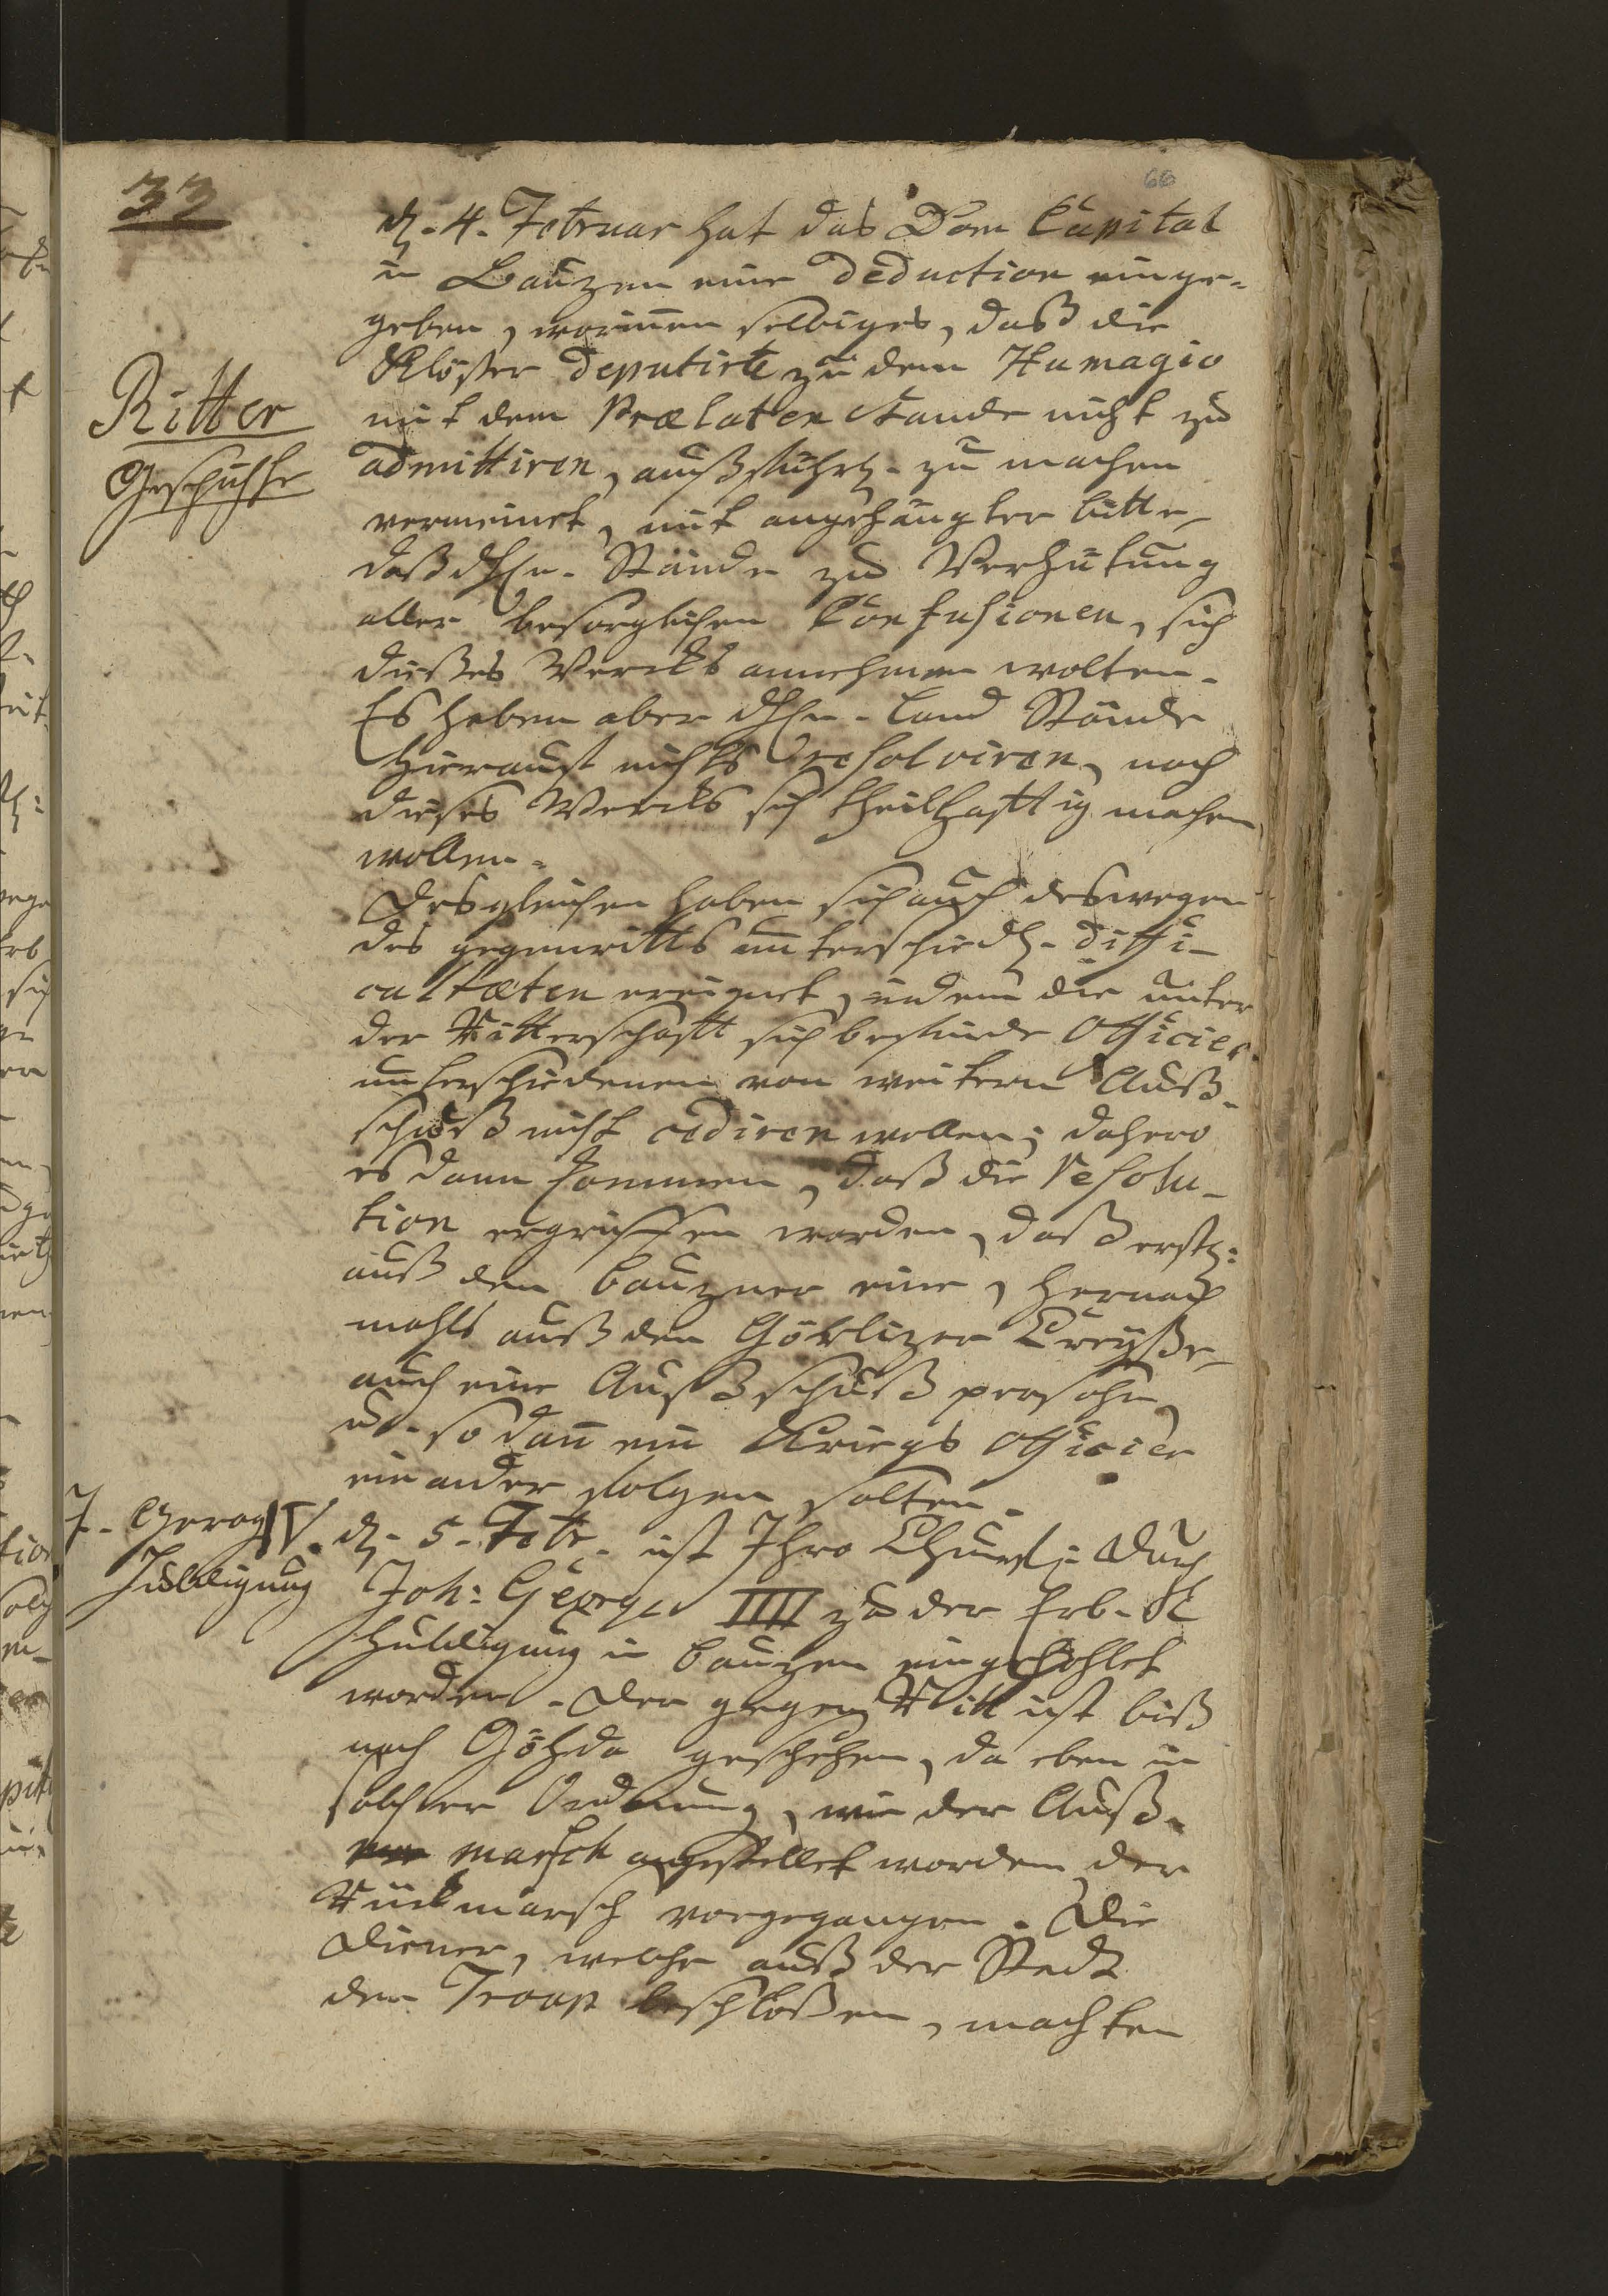 33
66
d. 4. Februar hat das Dom Capital
in Bauzen eine Deduction einge-
geben, worinnen selbiges, daß die
Klöster Deputirte zu dem Humagio
mit dem Prælaten Stande nicht zu
admittiren, außführl. zu machen
vermeinet, mit angehängter bitte,
daß d. Hn. Stände zu Verhütung
aller besorglichen Confusionen, sich
dießes Wercks annehmen wolten.
Es haben aber d. Hn. Land Stände
hierauf nichts resolviren, noch
dieses Wercks sich theilhafftig machen
wollen.
Desgleichen haben sich auch deswegen
des gegenritts unterschiedl. diffi-
cultæten ereignet, indem die unter
der Ritterschafft sich befinde Officier
unterschiedenen von weitern Auß-
schuß nicht cediren wollen; dahero
es dann kommen, daß die Resolu-
tion ergriffen worden, daß erstl:
auß dem bauzner eine, hernach
mahls auß den Görlizer Creyße,
auch eine Außschuß persohn,
u. so dañ ein Kriegs officier
ein ander folgen solten.
d. 5. Febr. ist Ihro Churfl: Durch
Joh: George IIII zu der Erb-
huldigung in bauzen eingehohlet
worden. Der gegen Ritt ist biß
nach Göhda geschehen, da eben in
solcher Ordnung, wie der Auß-
marsch angestellet worden der
Rückmarsch vorgegangen. Die
Diener, welche auß der Stadt
den Troop beschloßen, machten
Ritter
Geschichte
J. Georg IV.
Huldigung